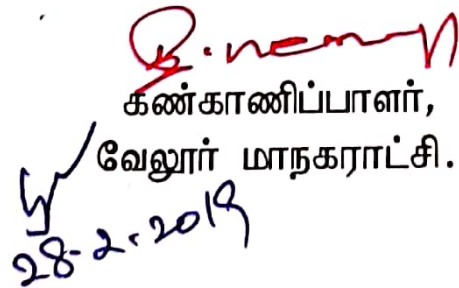 கண்காணிப்பாளர்,
வேலூர் மாநகராட்சி.
28-2-2019